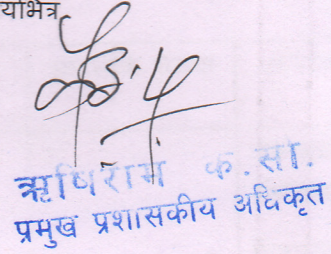 यभित्र
ऋषिराम के. सी.
प्रमुख प्रशासकीय अधिकृत